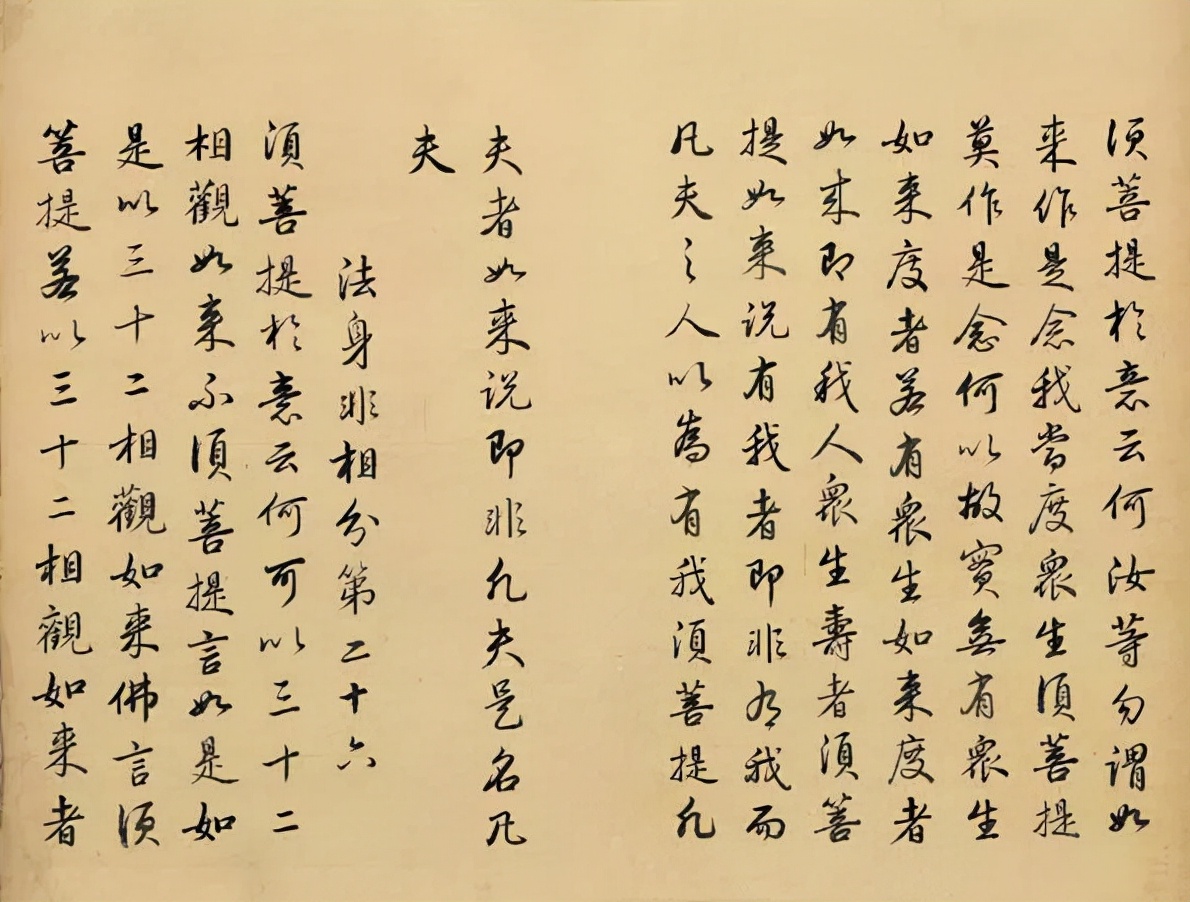 须菩提於意云何汝等勿谓如
来作是念我当度众生须菩提
莫作是念何以故实无有众生
如来度者若有众生如来度者
如来即有我人众生寿者须菩
提如来说有我者即非有我而
凡夫之人以为有我须菩提凡
夫者如来说即非凡夫是名凡
夫
法身非相分第二十六
须菩提於意云何可以三十二
相觀如来不须菩提言如是如
是以三十二相觀如来佛言须
菩提若以三十二相觀如来者